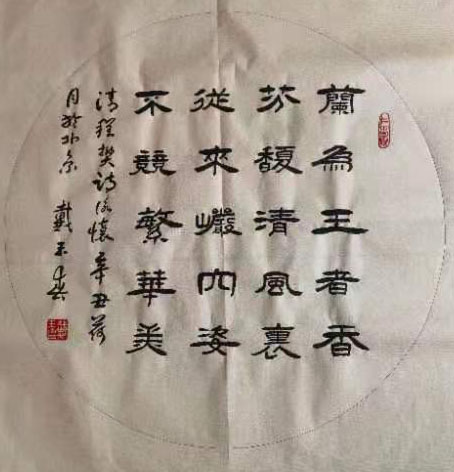 蘭為王者香
芬馥清風裏
從來巖穴姿
不競繁華美
清程樊诗咏懷辛丑荷
月於北京 戴